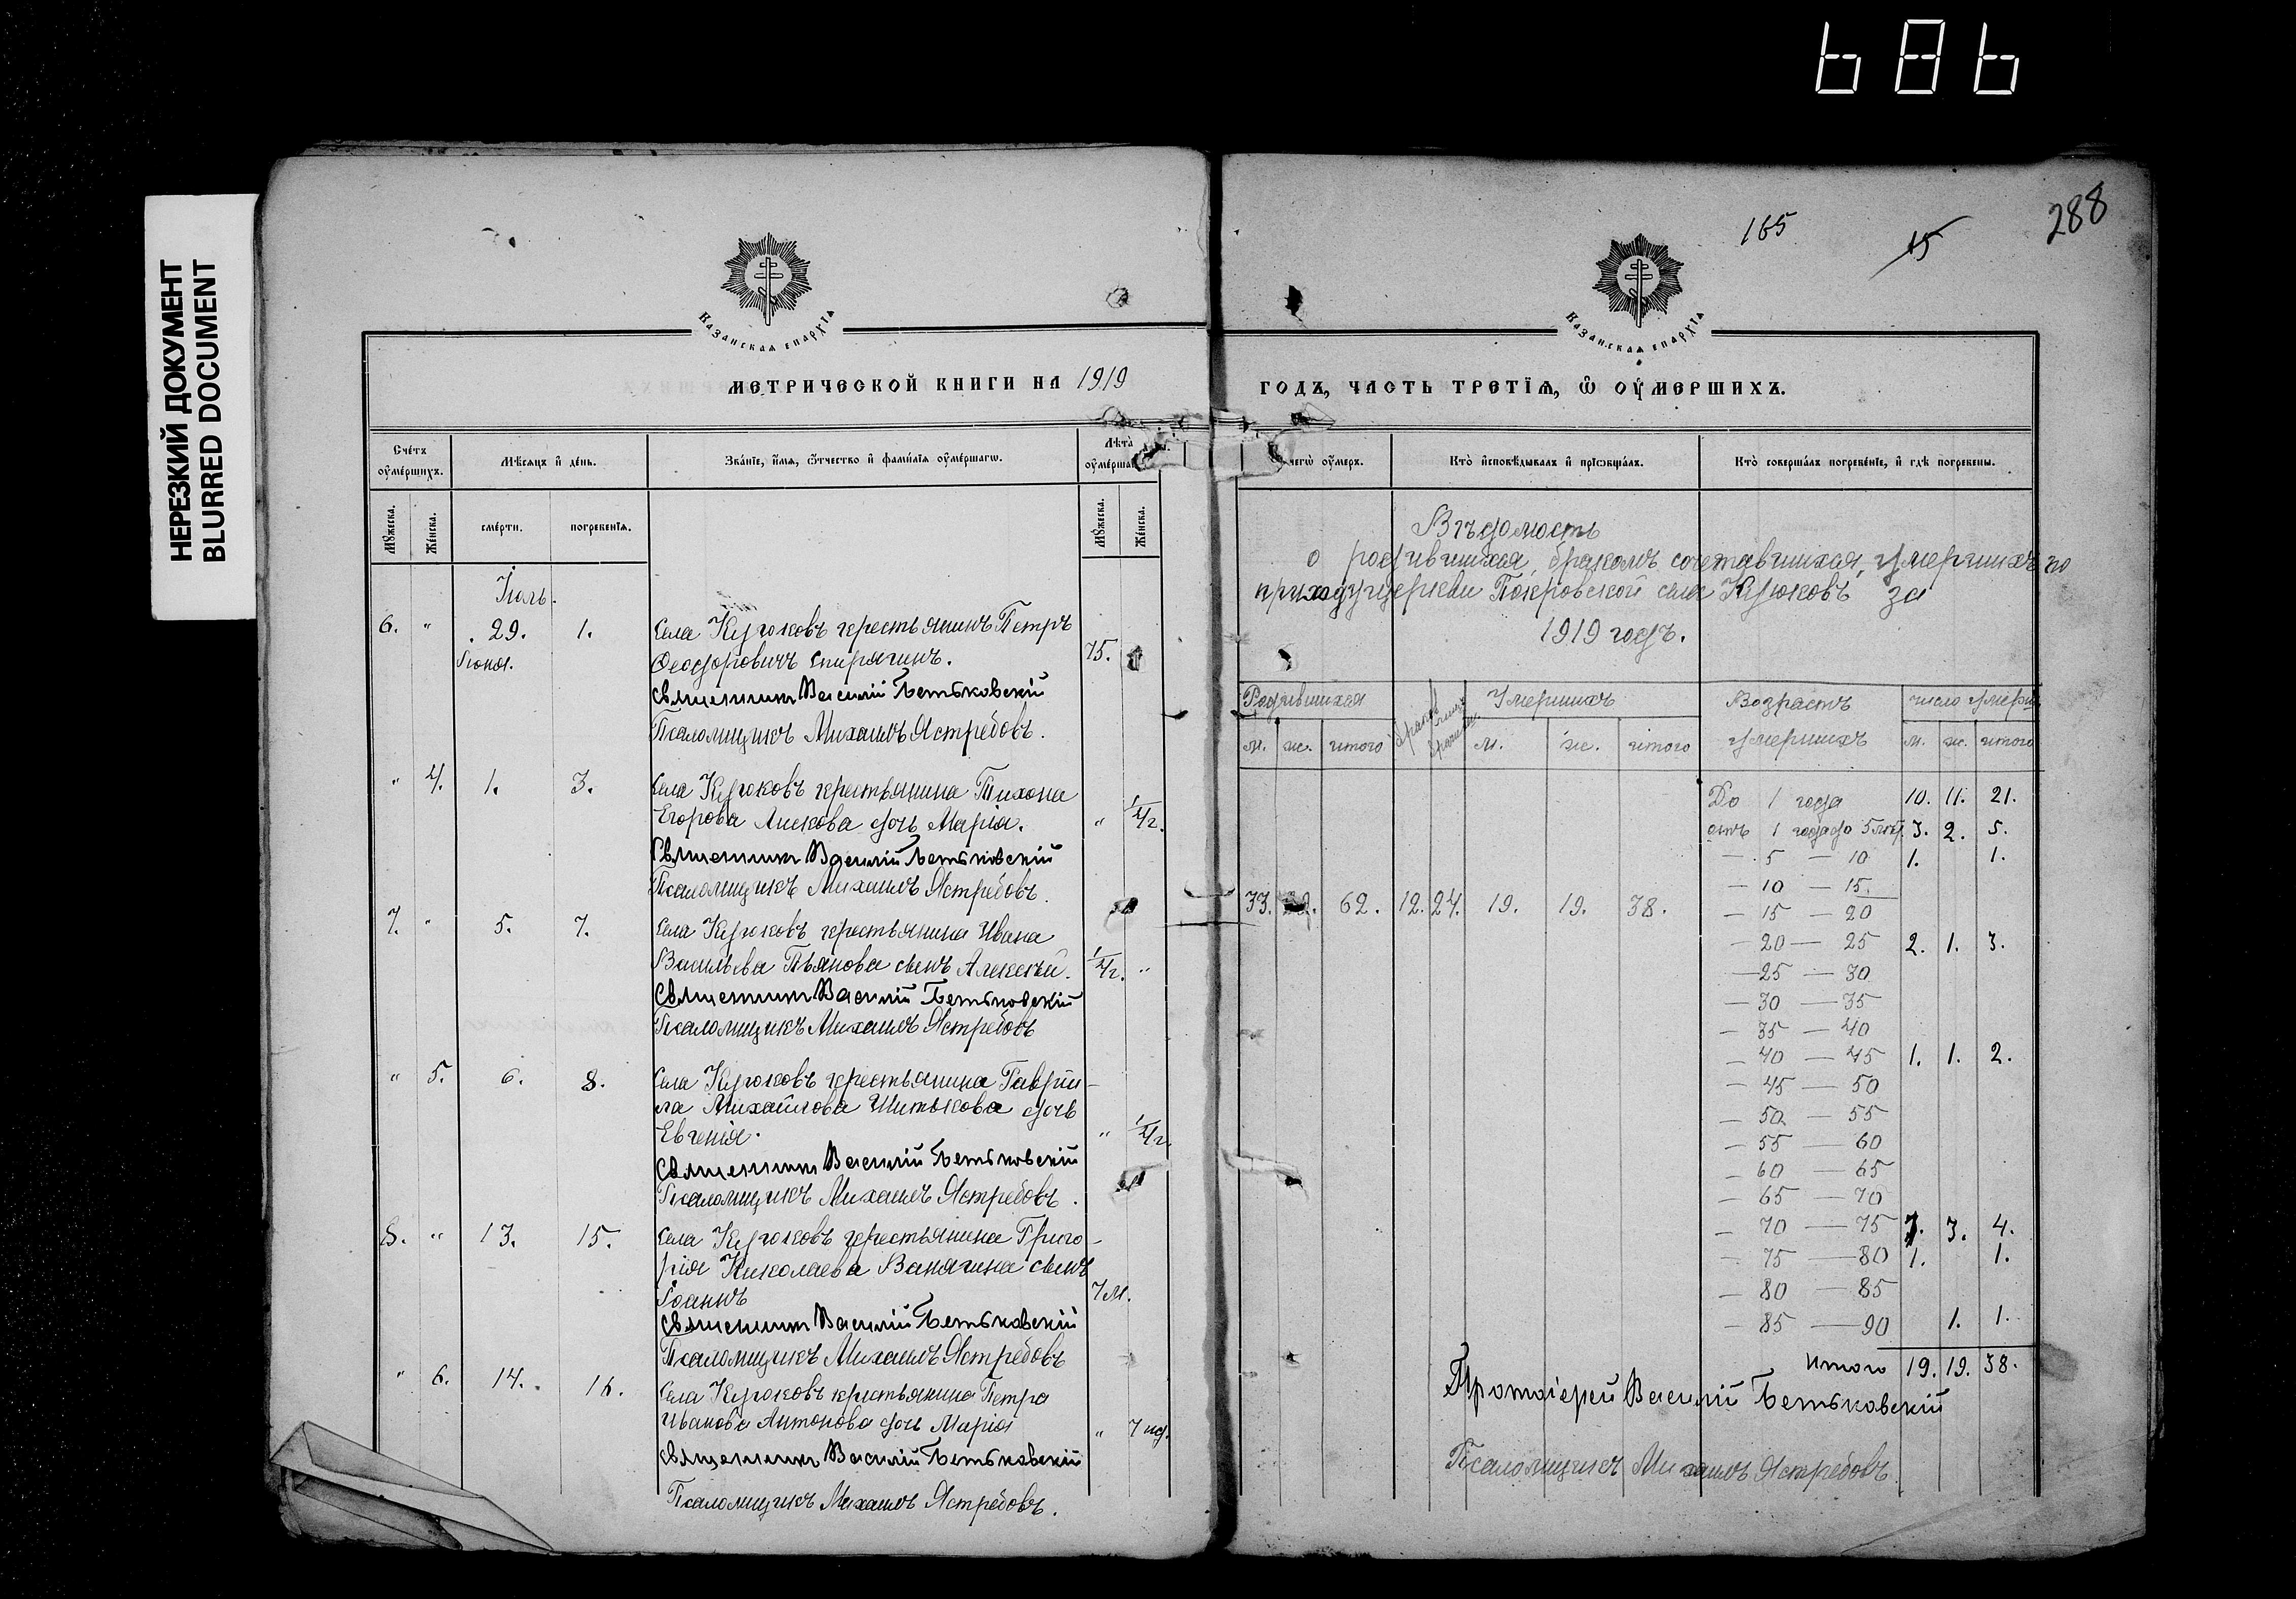 686
НЕРЕЗКИЙ ДОКУМЕНТ
BLURRED DOCUMENT
165
15
288
Казанская епархїѧ
Казанская епархїѧ
МЕТРИЧЕСКОЙ КНИГИ НА 1919
ГОДЪ, ЧАСТЬ ТРЕТЇѦ, Ѽ ОУМЕРШИХЪ.
Счетъ оумершихъ.
Мѣсяцъ и день.
Званїе, имя, отчество и фамилїя оумершагѡ.
Лѣта
Мужеска.
Женска.
смерти.
погребенїя.
Мужеска.
Женска.
чегѡ оумеръ.
Кто исповѣдывалъ и прїѡбщалъ.
Кто совершалъ погребенїе, и гдѣ погребены.
Іюль.
6. " 29. 1. Села Курюковъ крестьянинъ Петръ
Іюня. Ѳеодоровичъ Спирягинъ. 75.
Священникъ Василій Бетьковскій
Псаломщикъ Михаилъ Ястребовъ.
" 4. 1. 3. Села Курюковъ крестьянина Тихона
Егорова Лискова дочь Марія. " 1/2 г.
Священникъ Василій Бетьковскій
Псаломщикъ Михаилъ Ястребовъ.
7. " 5. 7. Села Курюковъ крестьянина Ивана
Васильева Пьянова сынъ Алексѣй. 1/2 г. "
Священникъ Василій Бетьковскій
Псаломщикъ Михаилъ Ястребовъ
" 5. 6. 8. Села Курюковъ крестьянина Гаврі-
ла Михайлова Шитькова дочь
Евгенія. " 1/2 г.
Священникъ Василій Бетьковскій
Псаломщикъ Михаилъ Ястребовъ.
8. " 13. 15. Села Курюковъ крестьянина Григо-
рія Николаева Ванягина сынъ
Іоаннъ 7 м.
Священникъ Василій Бетьковскій
Псаломщикъ Михаилъ Ястребовъ
" 6. 14. 16. Села Курюковъ крестьянина Петра
Иванова Антонова дочь Марія " 7 нед.
Священникъ Василій Бетьковскій
Псаломщикъ Михаилъ Ястребовъ.
Вѣдомость
о родившихся, бракомъ сочетавшихся, умершихъ по
приходу церкви Покровской села Курюковъ за
1919 годъ.
Родившихся
Умершихъ
Возрастъ умершихъ
число умерш.
м. ж. итого
м. ж. итого
м. ж. итого
33. 62. 12. 24. 19. 19. 38.
До 1 года 10. 11. 21.
отъ 1 года до 5 лѣт. 3. 2. 5.
— 5 — 10 1. 1.
— 10 — 15.
— 15 — 20
— 20 — 25 2. 1. 3.
— 25 — 30
— 30 — 35
— 35 — 40
— 40 — 45 1. 1. 2.
— 45 — 50
— 50 — 55
— 55 — 60
— 60 — 65
— 65 — 70
— 70 — 75 1. 3. 4.
— 75 — 80 1. 1.
— 80 — 85
— 85 — 90 1. 1.
Итого 19. 19. 38.
Протоіерей Василій Бетьковскій
Псаломщикъ Михаилъ Ястребовъ.